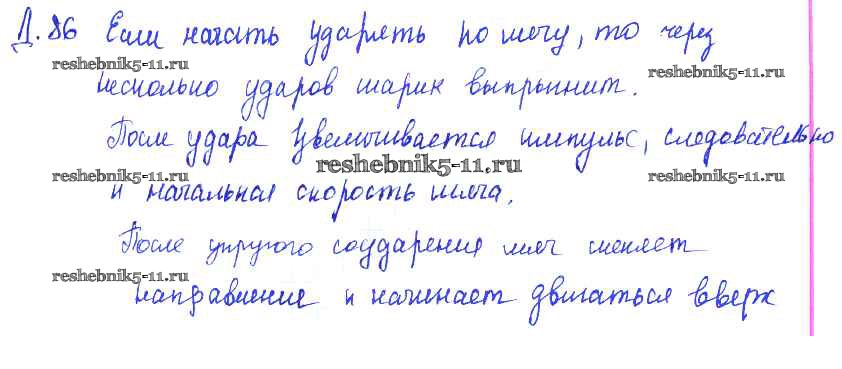 Д.86 Если начать ударять по мячу, то через
reshebnik5-11.ru
reshebnik5-11.ru
несколько ударов шарик выпрыгнит.
После удара увеличивается импульс, следовательно
reshebnik5-11.ru
reshebnik5-11.ru
reshebnik5-11.ru
и начальная скорость мяча.
После упругого соударения мяч меняет
reshebnik5-11.ru
направление и начинает двигаться вверх